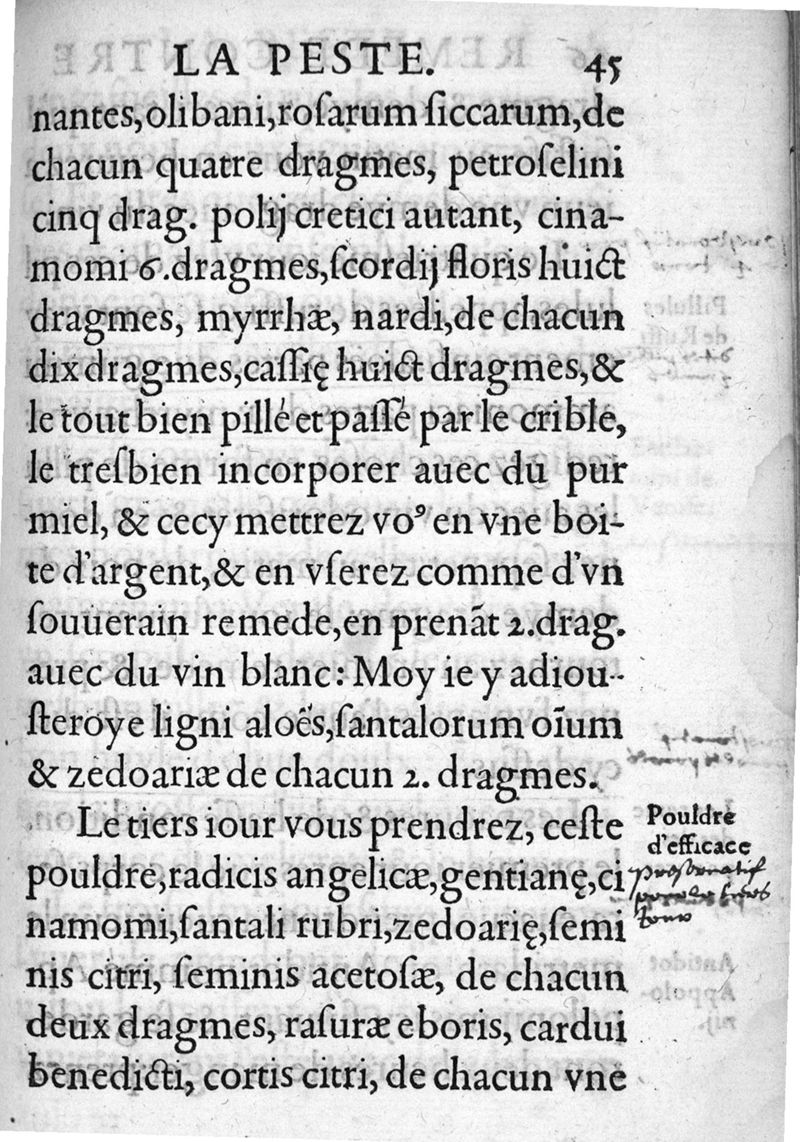 LA PESTE. 45
nantes,olibani,roſarum ſiccarum,de
chacun quatre dragmes, petroſelini
cinq drag. polij cretici autant, cina-
momi 6.dragmes,ſcordij floris huict
dragmes, myrrhæ, nardi,de chacun
dix dragmes,caſſię huict dragmes,&
le tout bien pillé et paſſé par le crible,
le treſbien incorporer auec du pur
miel, & cecy mettrez voꝰ en vne boi-
te d'argent,& en vſerez comme d'vn
ſouuerain remede,en prenāt 2.drag.
auec du vin blanc: Moy ie y adiou-
ſteroye ligni aloës,ſantalorum oīum
& zedoariæ de chacun 2. dragmes.
Le tiers iour vous prendrez, ceſte
Pouldre
d'efficace
pouldre,radicis angelicæ,gentianę,ci
namomi,ſantali rubri,zedoarię,ſemi
nis citri, ſeminis acetoſæ, de chacun
deux dragmes, raſuræ eboris, cardui
benedicti, cortis citri, de chacun vne